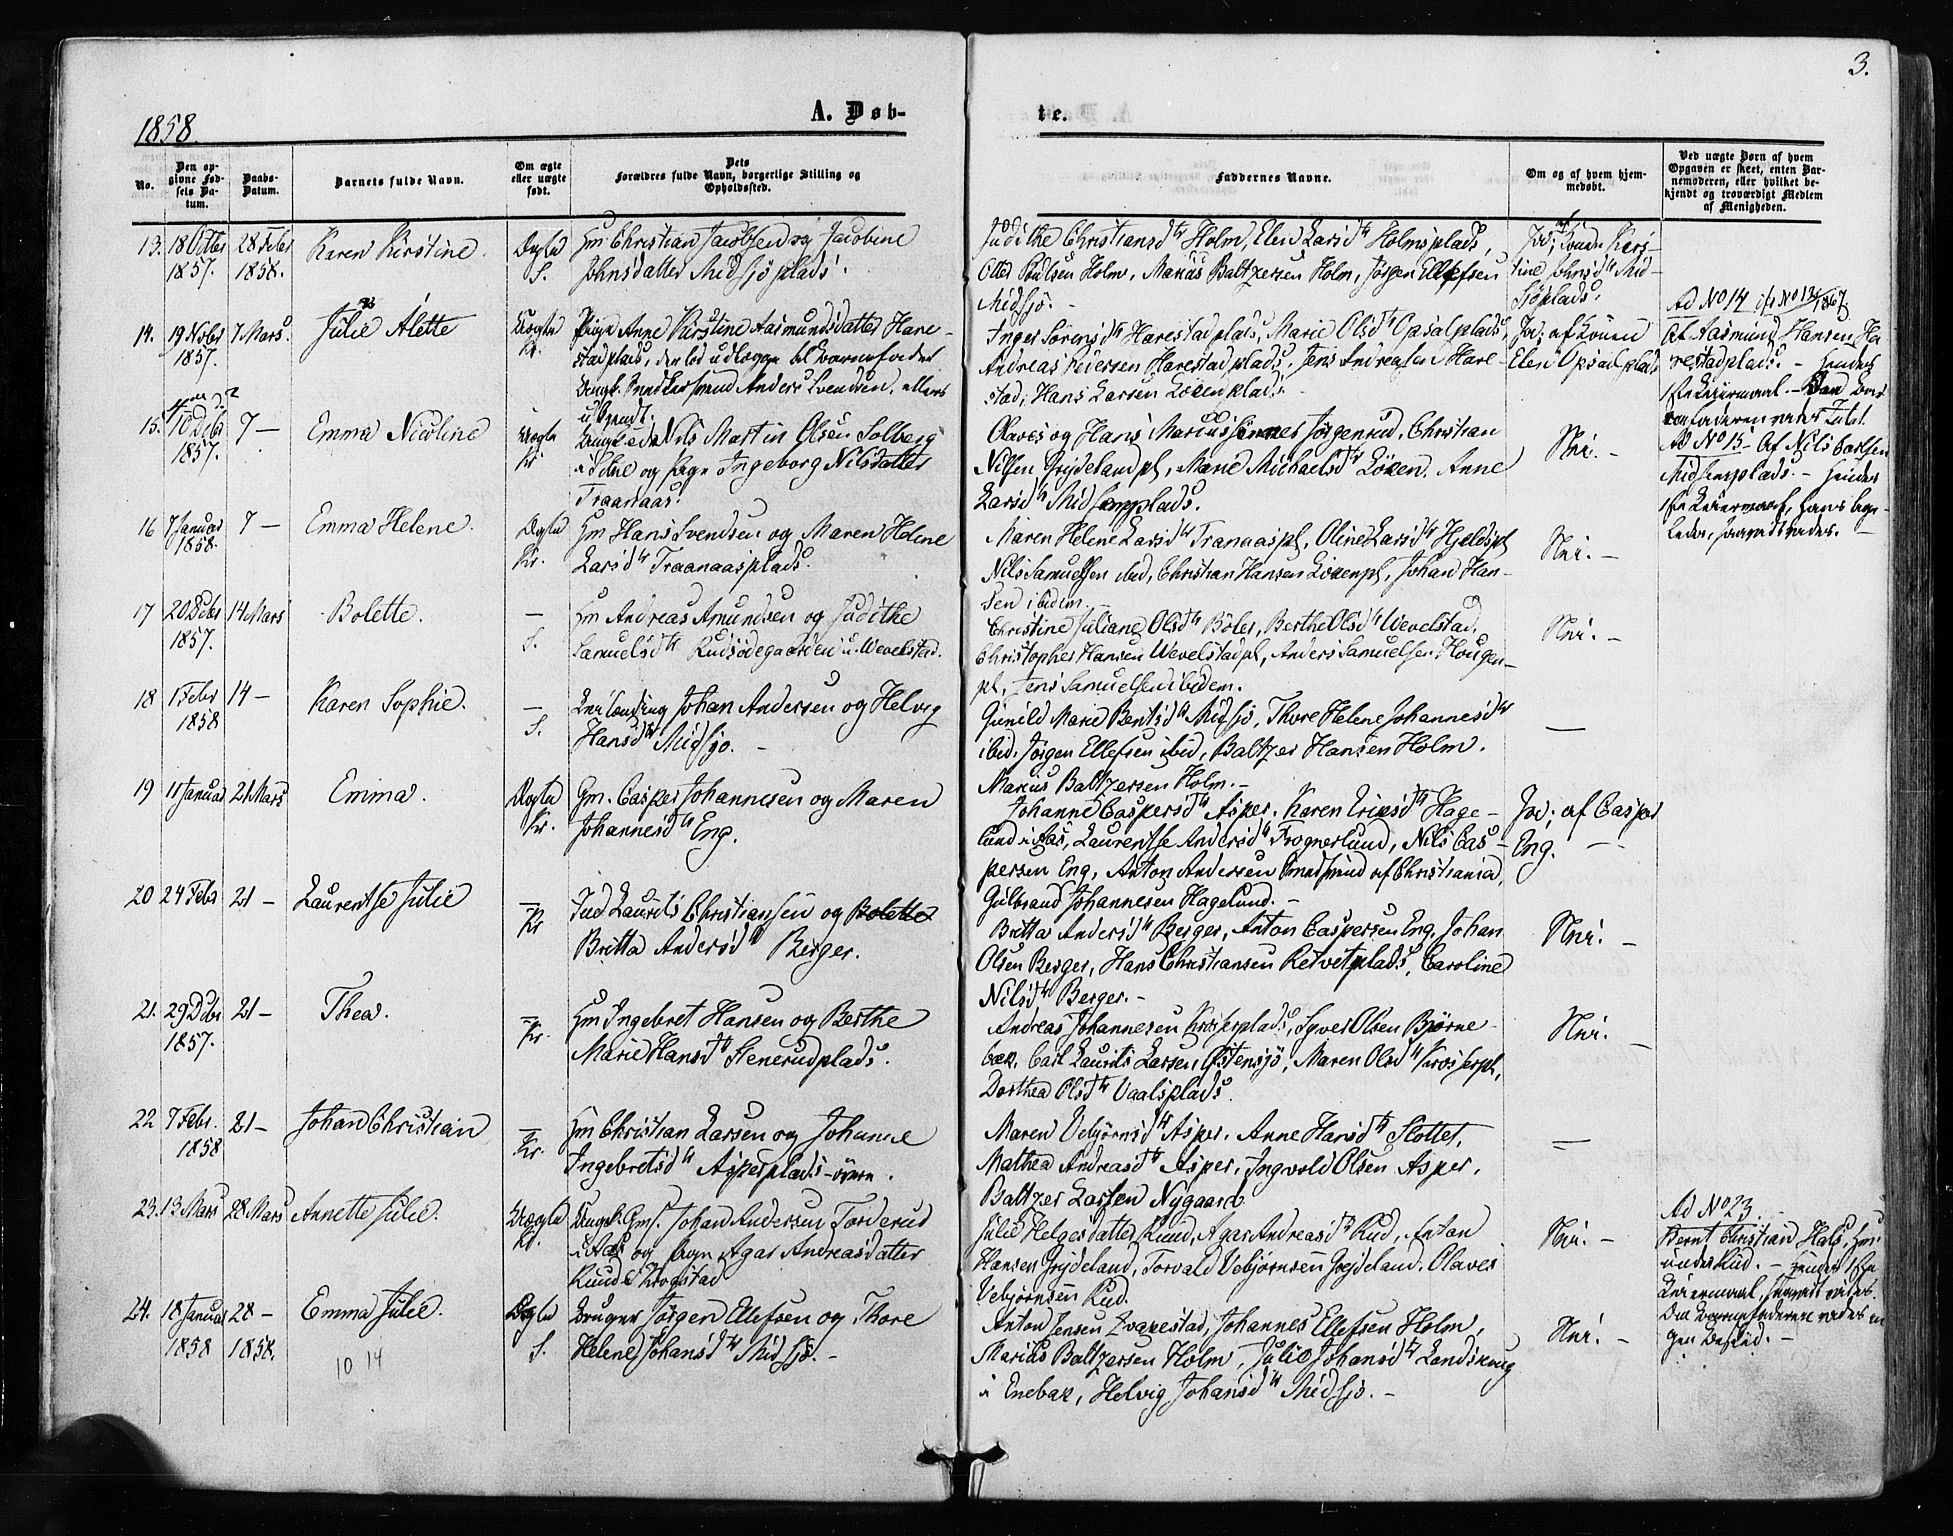 3.
1858.
A. Døb-
te.
No.
Den op-
givne Fød-
sels Da-
tum.
Daabs-
Datum.
Barnets fulde Navn.
Om ægte
eller uægte
født.
Dets
Forældres fulde Navn, borgerlige Stilling og
Opholdssted.
Faddernes Navne.
Om og af hvem hjem-
medøbt.
Ved uægte Børn af hvem
Opgaven er skeet, enten Bar-
nemoderen, eller hvilket be-
kjendt og troværdigt Medlem
af Menigheden.
13. 18 Octbr 28 Febr Karen Kirstine. Ægte Hm Christian Jacobsen og Jacobine
1857. 1858. S. Johnsdatter Midsjöplads.
Judithe Christiansdtr Holm, Elen Larsdtr Holmsplads,
Otter Poulsen Holm, Marius Baltzersen Holm, Jörgen Ellefsen
Midsjö.
Ja; af Konen Kirs-
tine Johnsdtr Mid-
sjöplads.
14. 19 Novbr 7 Mars. Julie Alette Uægte Pige Anne Kirstine Aasmundsdatter Hare-
1857. Kr. stadplads, der lod udlægge til Barnefader
Ungk. Anders Svendsen, ellers
ubekjendt.
Inger Sörensdtr Harestadplads, Marie Olsdtr Opsalplads,
Andreas Pedersen Harestadplads, Jens Andreasen Hare-
stad, Hans Larsen Löxenplads.
Ja; af Konen
Elen Opsalplads
Ad No 14
Af Aasmund Hansen Ha-
restadplads. - Hendes
1ste Leiermaal.
15. 10 Debr 7 - Emma Nicoline Uægte Ungk. Nils Martin Olsen Solberg
1857. Kr. og Pige Ingeborg Nilsdatter
Traanaas.
Olaves og Hans Marius Jörgenrud, Christian
Nilsen Grydelandpl, Marie Michaelsdtr Löxen, Anne
Larsdtr Midsemplads.
Nei. -
Ad No 15 - Af Nils Carlsen
Midsemplads - Hendes
1ste Leiermaal, hans lige-
ledes, saavidt vides. -
16 7 Januar 7 - Emma Helene. Ægte Hm Hans Svendsen og Maren Helene
1858. Kr. Larsdtr Traanaasplads.
Maren Helene Larsdtr Tranaaspl, Oline Larsdtr Hjeldspl
Nils Samuelsen ibid, Christian Hansen Löxenpl, Johan Han-
sen ibidem.
Nei. -
17 20 Debr 14 Mars Bolette. - Hm Andreas Amundsen og Judithe
1857. S. Samuelsdtr Rudsödegaarden u. Wevelstad.
Christine Juliane Olsdtr Böler, Berthe Olsdtr Wevelstad,
Christopher Hansen Wevelstadpl, Anders Samuelsen Hougen-
pl, Jens Samuelsen ibidem.
Nei. -
18 1 Febr 14 - Karen Sophie. - Johan Andersen og Helvig
1858 S. Hansdtr Midsjo. -
Gunild Marie Bentsdtr Midsjö, Thore Helene Johannesdtr
ibid. Jörgen Ellefsen ibid, Baltzer Hansen Holm.
Marius Baltzersen Holm. -
-
19 11 Januar 21 Mars Emma. Ægte Gm. Casper Johannesen og Maren
Kr. Johannesdtr Eng.
Johanne Caspersdtr Asper, Karen Eriksdtr Hage-
lund i Aas, Laurentse Andersdtr Frognerlund, Nils Cas-
persen Eng, Anton Andersen Smedsvend af Christiania,
Gulbrand Johannesen Hagelund. -
Ja; af Casper
Eng. -
20 24 Febr 21 - Laurentse Julie - Ind Laurits Christiansen og Bolette
Kr Britta Andersdtr Berger.
Britta Andersdtr Berger, Anton Caspersen Eng, Johan
Olsen Berger, Hans Christiansen Retvetplads, Caroline
Nilsdtr Berger. -
Nei. -
21. 29 Debr 21 - Thea. - Hm Ingebret Hansen og Berthe
1857. Kr. Marie Hansdtr Stenerudplads.
Andreas Johannesen Krosserplads, Syver Olsen Björne-
bæk, Carl Laurits Larsen Östensjö, Maren Olsdtr Krosserpl,
Dorthea Olsdtr Vaalsplads.
Nei. -
22 7 Febr. 21 - Johan Christian - Hm Christian Larsen og Johanne
1858 Kr. Ingebretsdtr Asperplads - övre.
Maren Vebjörnsdtr Asper. Anne Hansdtr Slottet,
Mathea Andreasdtr Asper, Ingvold Olsen Asper,
Baltzer Larsen Nygaard.
-
23. 13 Mars 28 Mars Annette Julie. Uægte Ungk. Gms. Johan Andersen Torderud
Kr. i Aas og Pige Agar Andreasdatter
Ruud i Krogstad
Julie Helgesdatter Ruud, Agar Andreasdtr Rud, Anton
Hansen Grydeland, Torvald Vebjörnsen Grydeland, Olaves
Vebjörnsen Rud.
Nei. -
Ad No 23.
Bernt Christian Hals, Hm
under Rud. - Hendes 1ste
Leiermaal, saavidt vides.
24. 18 Januar 28 - Emma Julie. Ægte Bruger Jörgen Ellefsen og Thore
1858 1858. S. Helene Johansdtr Midsjö. -
Anton Jensen Kvakestad, Johannes Ellefsen Holm,
Marius Baltzersen Holm, Julie Johansdtr Landskoug
i Enebak, Helvig Johansdtr Midsjo. -
Nei. -
10 14